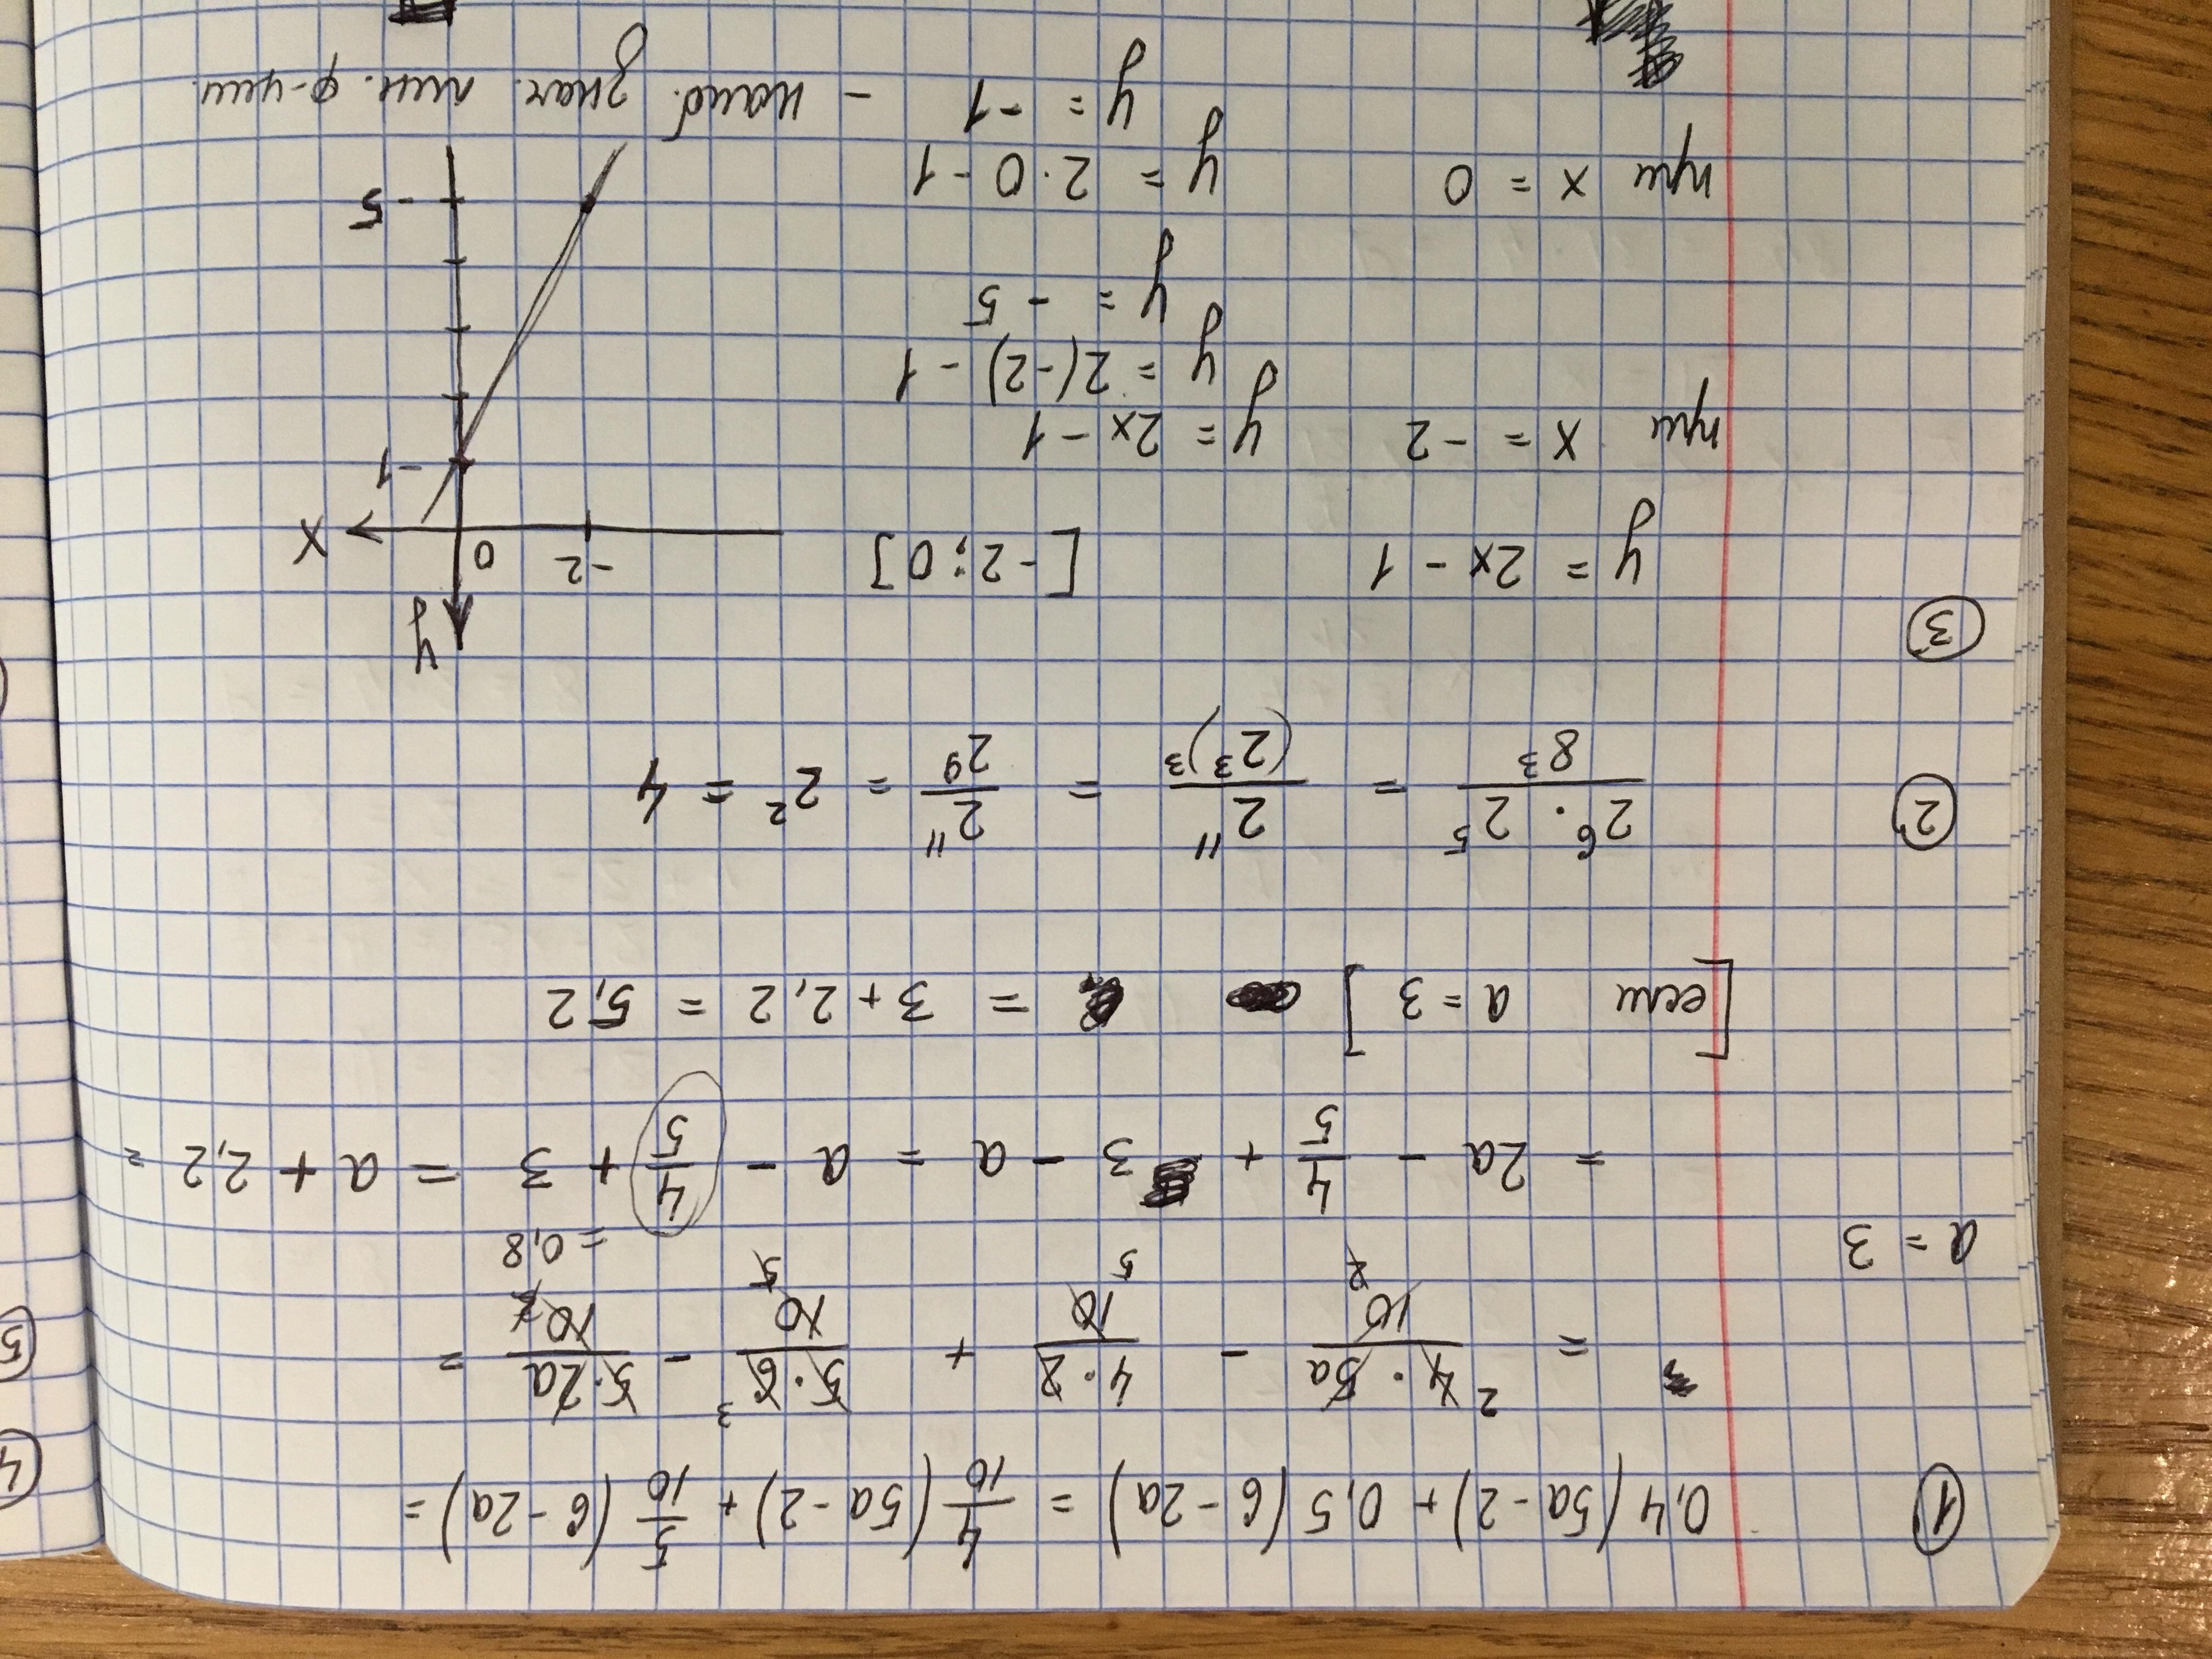 ① 0,4(5a-2)+0,5(6-2a) = 4/10(5a-2)+5/10(6-2a) =
= 4·5a/10 - 4·2/10 + 5·6/10 - 5·2a/10 =
2 2 5 3 5 2
a = 3
= 0,8
= 2a - 4/5 + 3 - a = a - 4/5 + 3 = a + 2,2 =
[если a = 3] = 3 + 2,2 = 5,2
② 2⁶·2⁵/8³ = 2¹¹/(2³)³ = 2¹¹/2⁹ = 2² = 4
③
y = 2x - 1 [-2; 0]
при x = -2 y = 2x - 1
y = 2(-2) - 1
y = -5
при x = 0 y = 2·0 - 1
y = -1 - наиб. знач. лин. ф-ции
y
-2 0 x
-1
-5
④
⑤